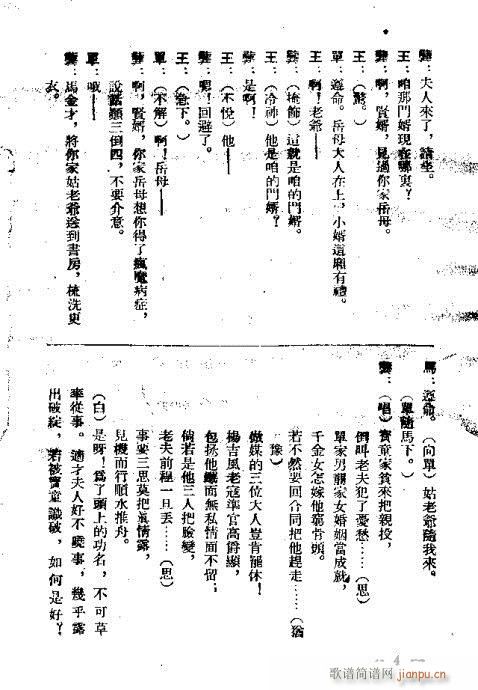 龔：夫人來了，請坐。
王：咱那門婿現在哪裏？
龔：啊，賢婿，見過你家岳母。
王：（驚。）
單：遵命。岳母大人在上，小婿這廂有禮。
王：啊！老爺——
龔：（掩飾）這就是咱的門婿。
王：（冷神）他是咱的門婿？
龔：是啊！
王：（不悅）他——
龔：嗯！回避了。
王：（急下。）
單：（不解）啊！岳母——
龔：啊，賢婿，你家岳母想你得了瘋魔病症，
說話顛三倒四，不要介意。
單：哦——
龔：馬金才，將你家姑老爺送到書房，梳洗更
衣。
馬：遵命。（向單）姑老爺隨我來。
（單隨馬下。）
龔：（唱）寶童家貧來把親投，
倒叫老夫犯了憂愁……（思）
單家男龔家女婚姻當成就，
千金女怎嫁他窮骨頭。
若不然要回合同把他趕走……（猶
豫）
做媒的三位大人豈肯罷休！
楊吉風老寇準官高爵顯，
包拯他鐵面無私情面不留；
倘若是他三人把臉變，
老夫前程一旦丟……（思）
事要三思莫把眞情露，
見機而行順水推舟。
（白）是呀！爲了頭上的功名，不可草
率從事。適才夫人好不曉事，幾乎露
出破綻，若被寶童識破，如何是好？
4
歌谱简谱网
jianpu.cn